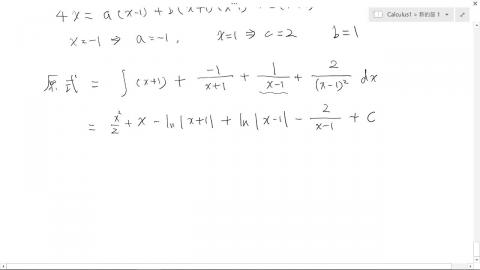 Calculus1 > 新的層 1
4x = a(x-1) + b(x+1)(x-1)
x=-1 ⇒ a=-1, x=1 ⇒ c=2 b=1
原式 = ∫ (x+1) + \frac{-1}{x+1} + \frac{1}{x-1} + \frac{2}{(x-1)^2} dx
= \frac{x^2}{2} + x - ln|x+1| + ln|x-1| - \frac{2}{x-1} + C